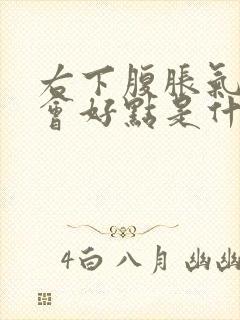 右下腹脹氣
會好點是什
4白八月幽幽